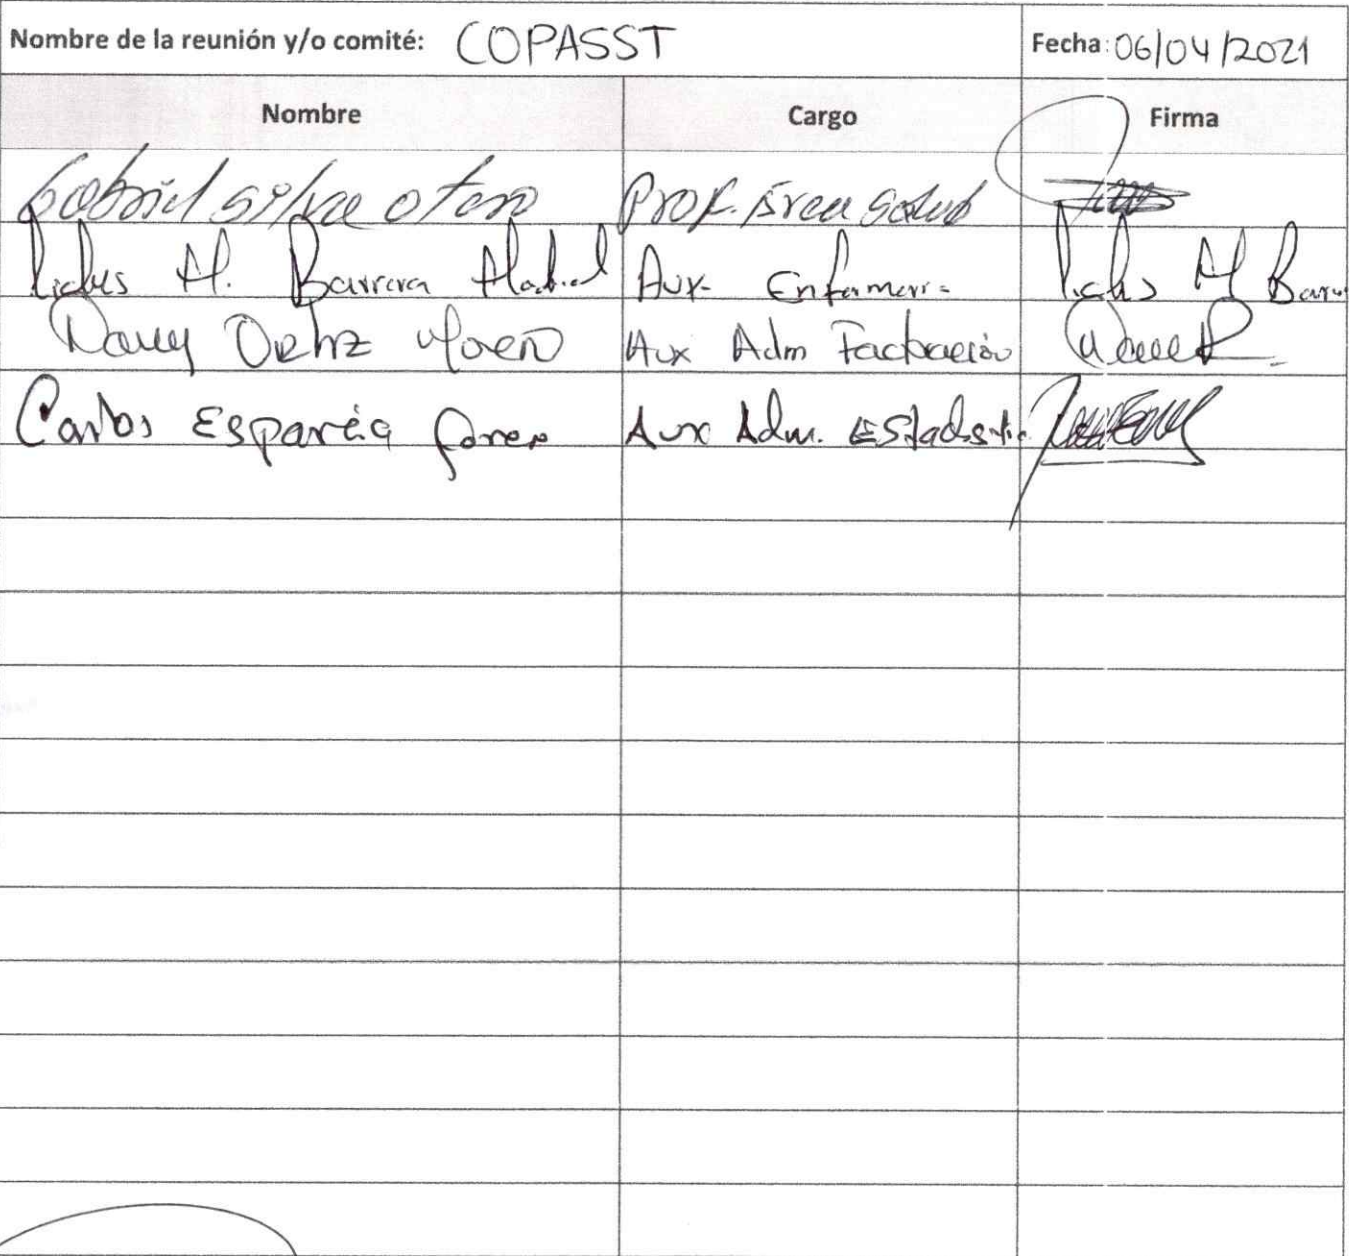 Nombre de la reunión y/o comité: COPASST Fecha: 06/04/2021
Nombre Cargo Firma
Gabriel Silva Otero Prof. Área Salud
M. Barrera Madrid Aux- Enfermeri- M Barre
Ortiz Aux Adm Facturación
Carlos Aux Adm. Estadisti